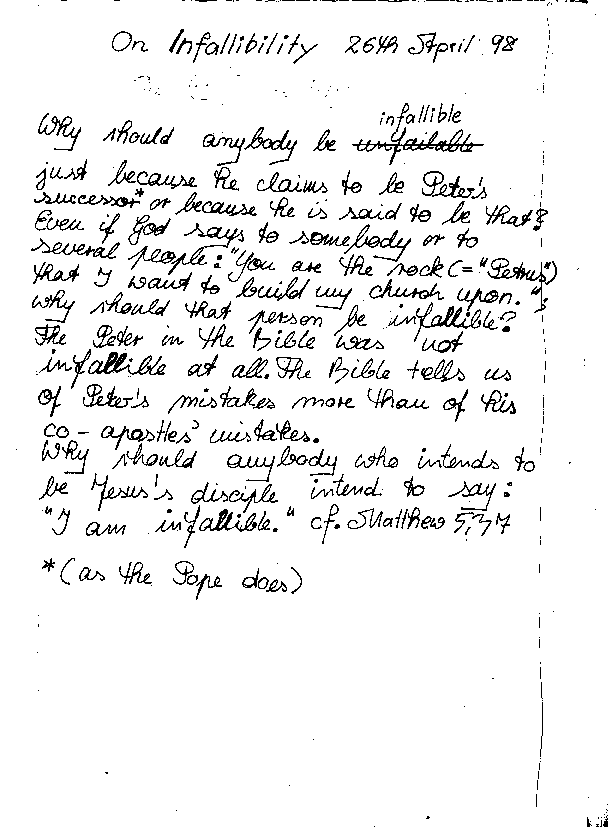 On Infallibility 26th April 98
infallible
Why should anybody be unfailable
just because he claims to be Peter's
successor* or because he is said to be that?
Even if God says to somebody or to
several people: "You are the rock (= "Petrus")
that I want to build my church upon.";
why should that person be infallible?
The Peter in the Bible was not
infallible at all. The Bible tells us
of Peter's mistakes more than of his
co-apostles' mistakes.
Why should anybody who intends to
be Jesus's disciple intend to say:
"I am infallible." cf. Matthew 5,37
*(as the Pope does)